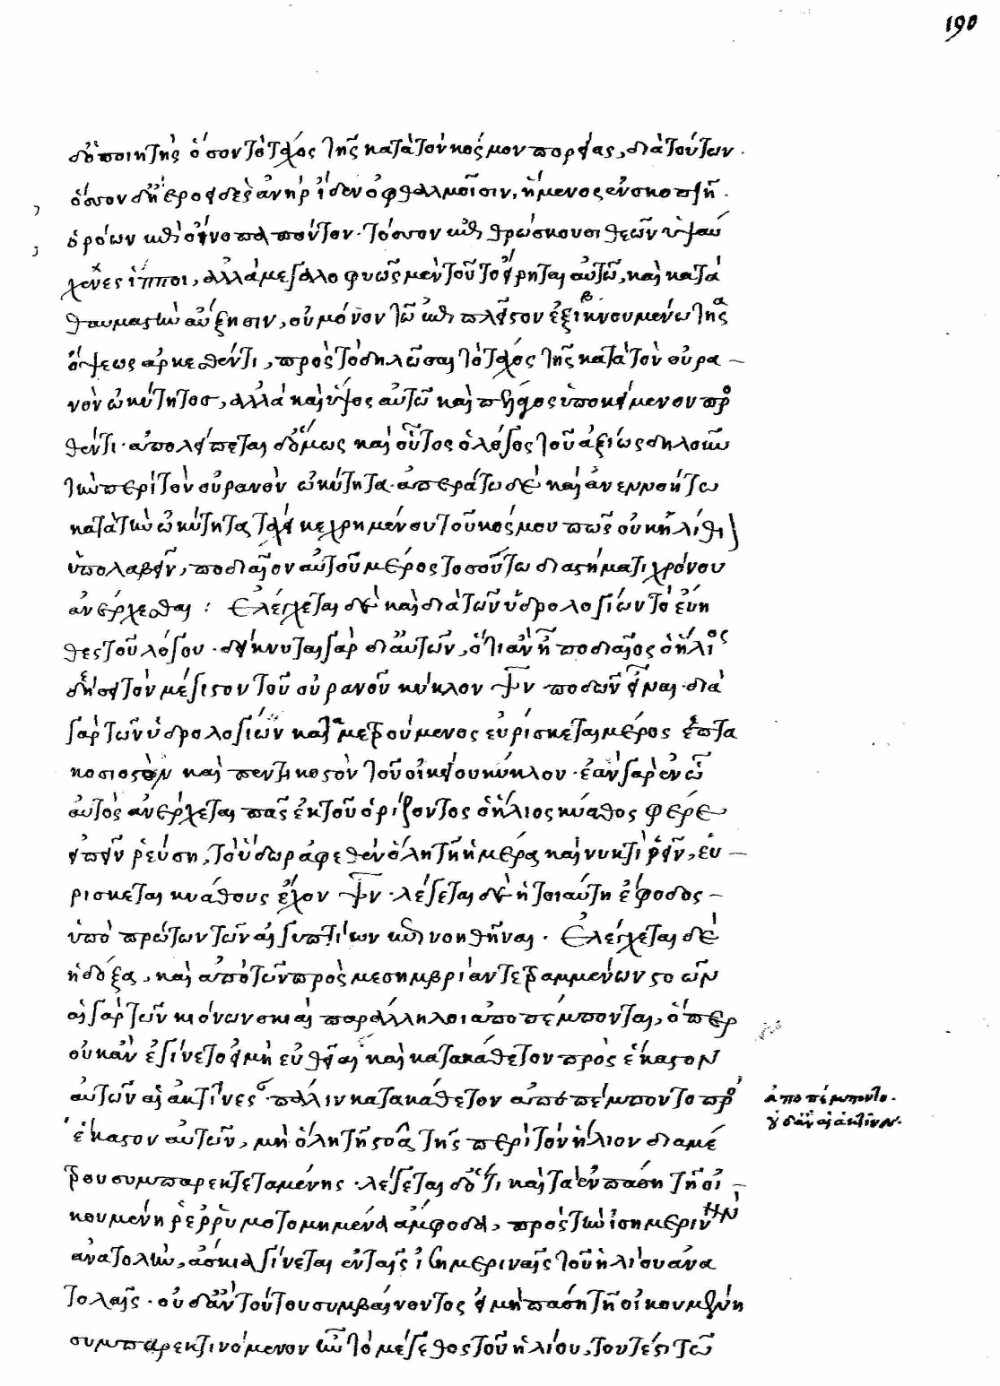 190
δ' ὁ ποιητὴς ὅσον τὸ τάχος τῆς κατὰ τὸν κόσμον πορείας, διὰ τούτων.
ὅσσον δ' ἠεροειδὲς ἀνὴρ ἴδεν ὀφθαλμοῖσιν, ἥμενος ἐν σκοπιῆ.
ὁρόων ἐπὶ οἴνοπα πόντον· τόσσον ἐπιθρώσκουσι θεῶν ὑψαύ
χενες ἵπποι, ἀλλὰ μεγαλοφυῶς μὲν τοῦτο εἴρηται αὐτῶ, καὶ κατὰ
θαυμαστὴν αὔξησιν, οὐ μόνον τῶ ἐπὶ πλεῖστον ἐξικνουμένω τῆς
ὄψεως ἀρκεσθέντι, πρὸς τὸ δηλῶσαι τὸ τάχος τῆς κατὰ τὸν οὐρα –
νὸν ὠκύτητος, ἀλλὰ καὶ ὕψος αὐτῶ καὶ πέλαγος ὑποκείμενον προσ
θέντι· ἀπολείπεται δ' ὅμως καὶ οὗτος ὁ λόγος τοῦ ἀξίως δηλοῦν
τὴν περὶ τὸν οὐρανὸν ὠκύτητα· ἀπεράτω δὲ καὶ ἀνεννοήτω
κατὰ τὴν ὠκύτητα τάχει κεχρημένου τοῦ κόσμου πῶς οὐκ ἠλίθιον
ὑπολαβεῖν, ποδιαῖον αὐτοῦ μέρος τοσούτω διαστήματι χρόνου
ἀνέρχεσθαι : Ἐλέγχεται δὲ καὶ διὰ τῶν ὑδρολογίων τὸ εὔη
θες τοῦ λόγου· δείκνυται γὰρ δι' αὐτῶν, ὅτι ἂν ἦ ποδιαῖος ὁ ἥλιος
δεήσει τὸν μέγιστον τοῦ οὐρανοῦ κύκλον ψν ποδῶν εἶναι· διὰ
γὰρ τῶν ὑδρολογίων καταμετρούμενος εὑρίσκεται μέρος ἑπτα
κοσιοστὸν καὶ πεντηκοστὸν τοῦ οἰκείου κύκλου· ἐὰν γὰρ ἐν ὧ
αὐτὸς ἀνέρχεται πᾶς ἐκ τοῦ ὁρίζοντος ὁ ἥλιος κύαθος φέρε
εἰπεῖν ῥεύση, τὸ ὕδωρ ἀφεθὲν ὅλη τῆ ἡμέρα καὶ νυκτὶ ῥεῖν, εὑ –
ρίσκεται κυάθους ἔχον ψν· λέγεται δὲ ἡ τοιαύτη ἔφοδος –
ὑπὸ πρώτων τῶν αἰγυπτίων ἐπινοηθῆναι· Ἐλέγχεται δὲ
ἡ δόξα, καὶ ἀπὸ τῶν πρὸς μεσημβρίαν τετραμμένων στοῶν
αἱ γὰρ τῶν κιόνων σκιαὶ παράλληλοι ἀποπέμπονται, ὅπερ
οὐκ ἂν ἐγίνετο εἰ μὴ εὐθεῖαι καὶ κατακάθετον πρὸς ἕκαστον
αὐτῶν αἱ ἀκτῖνες· πάλιν κατακάθετον ἀπεπέμποντο πρὸς
ἀποπέμποντο.
οὐδ' ἂν αἱ ἀκτῖνες.
ἕκαστον αὐτῶν, μὴ ὅλη τῆ στοᾶ τῆς περὶ τὸν ἥλιον διαμέ
τρου συμπαρεκτεταμένης· λέγεται δ' ὅτι καὶ τὰ ἐν πάση τῆ οἰ –
κουμένη ἐρρυμοτομημένα ἄμφοδα, πρὸς τὴν ἰσημερινὴν
ἀνατολὴν, ἄσκια γίνεται ἐν ταῖς ἰσημεριναῖς τοῦ ἡλίου ἀνα
τολαῖς· οὐδ' ἂν τούτου συμβαίνοντος εἰ μὴ πάση τῆ οἰκουμένη
συμπαρεκτινόμενον ἦν τὸ μέγεθος τοῦ ἡλίου, τουτέστι τῶ